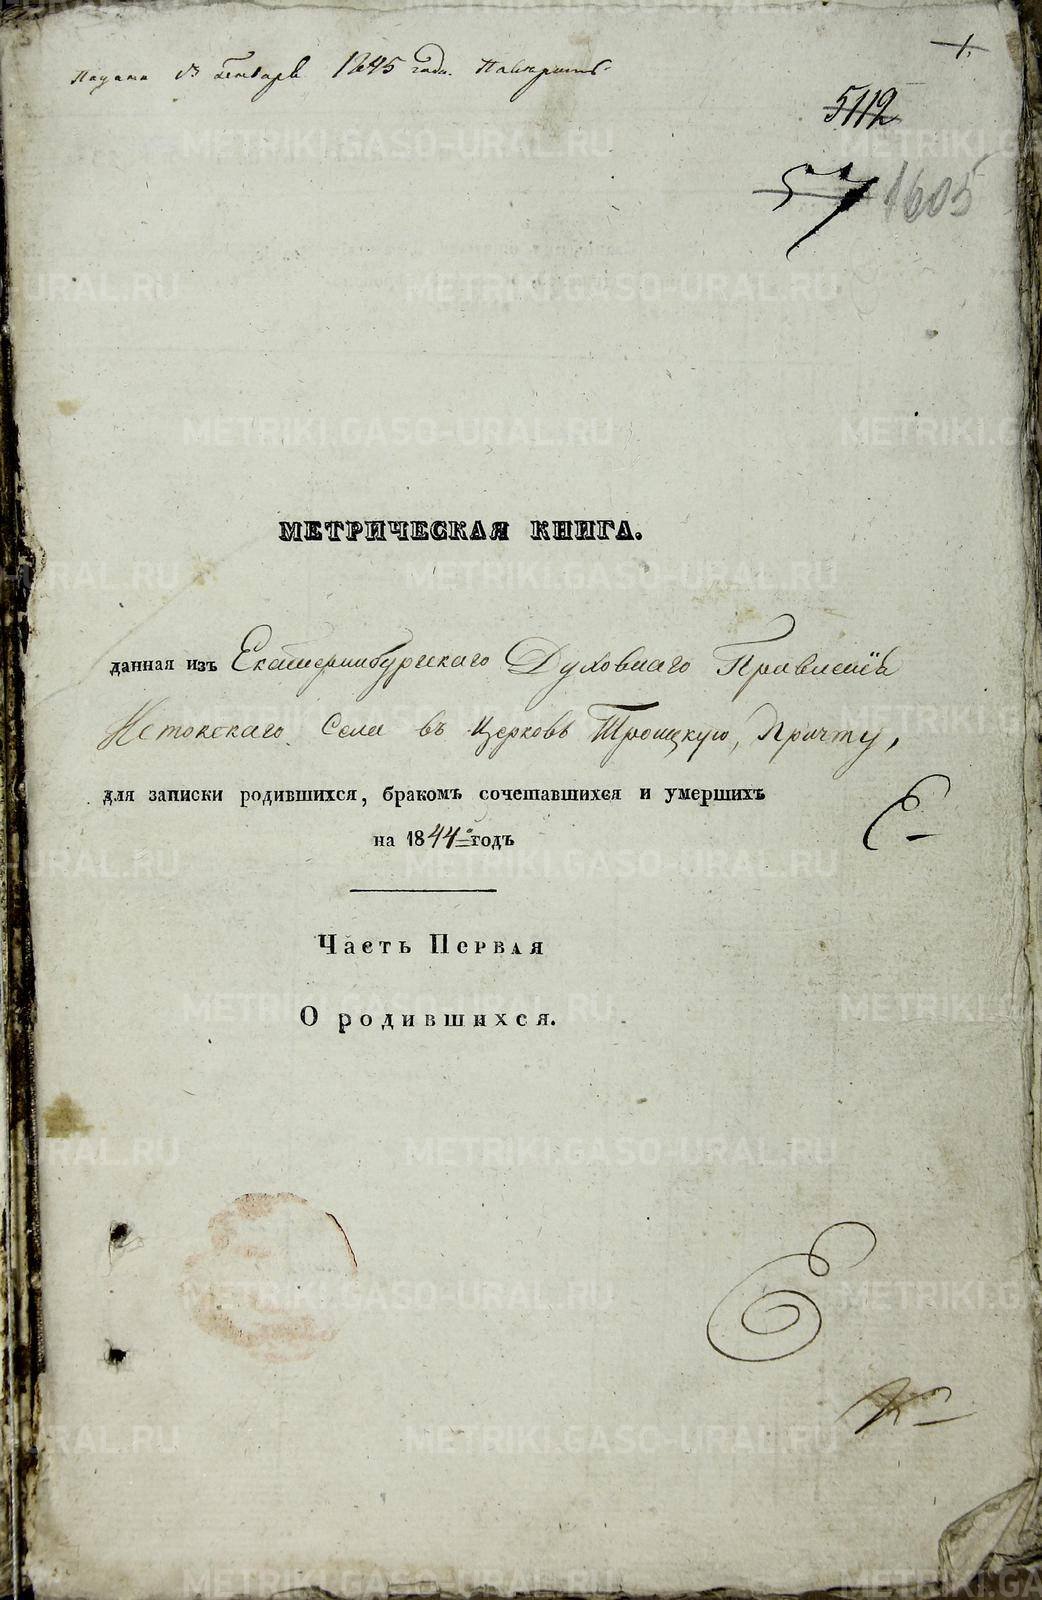 Подана 1845 года.
5112
57 1605
МЕТРИЧЕСКАЯ КНИГА.
данная изъ Екатеринбургскаго Духовнаго Правленія
Истокскаго Села въ Церковь Троицкую, Причту,
для записки родившихся, бракомъ сочетавшихся и умершихъ
на 1844 годъ
Часть Первая
О родившихся.
METRIKI.GASO-URAL.RU